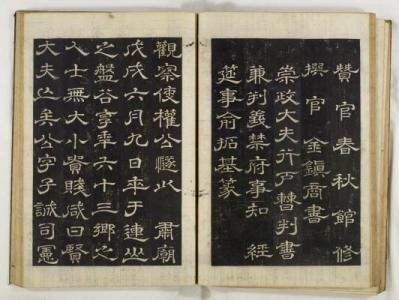 贊官春秋館修
撰官金鎭商書
崇政大夫行戶曹判書
兼判義禁府事知 經
筵事兪拓基篆
觀察使權公燧以 肅廟
戊戌六月九日卒于連山
之盤谷享年六十三鄕之
人士無大小貴賤咸曰賢
大夫亡矣公字子誠司憲